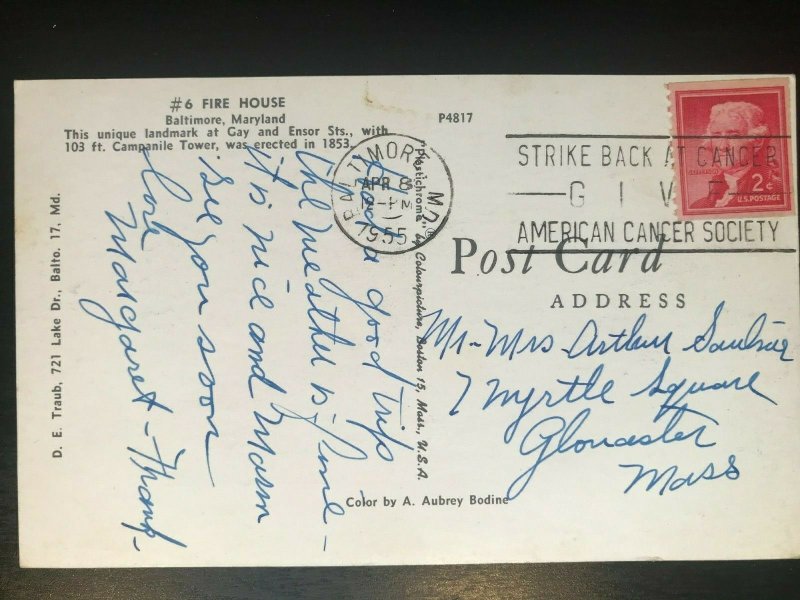 #6 FIRE HOUSE
Baltimore, Maryland
This unique landmark at Gay and Ensor Sts., with
103 ft. Campanile Tower, was erected in 1853.
P4817
BALTIMORE MD
APR 8
12-PM
1955
STRIKE BACK AT CANCER
GIVE
AMERICAN CANCER SOCIETY
JEFFERSON
2¢
U.S. POSTAGE
Post Card
ADDRESS
Mr-Mrs Arthur
7 Myrtle Square
Gloucester
Mass
a good trip
the weather is fine-
it is nice and warm
see you soon
love
Margaret-
"Plastichrome"® by Colourpicture, Boston 15, Mass., U.S.A.
D. E. Traub, 721 Lake Dr., Balto. 17, Md.
Color by A. Aubrey Bodine